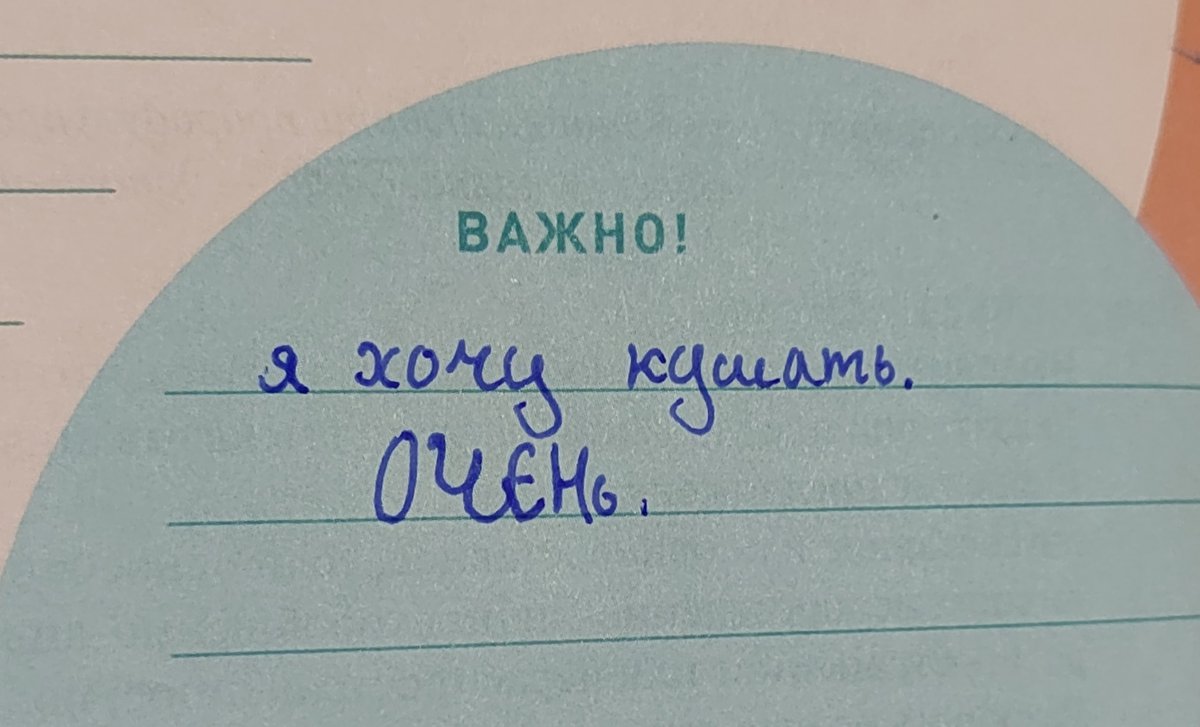 ВАЖНО!
я хочу кушать.
ОЧЕНЬ.